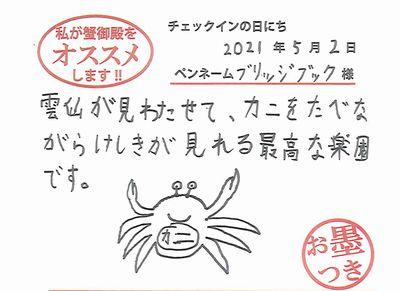 私が蟹御殿を
オススメ
します!!
チェックインの日にち
2021年5月2日
ペンネームブリッジブック 様
雲仙が見わたせて、カニをたべな
がらけしきが見れる最高な楽園
です。
カニ
お墨
つき